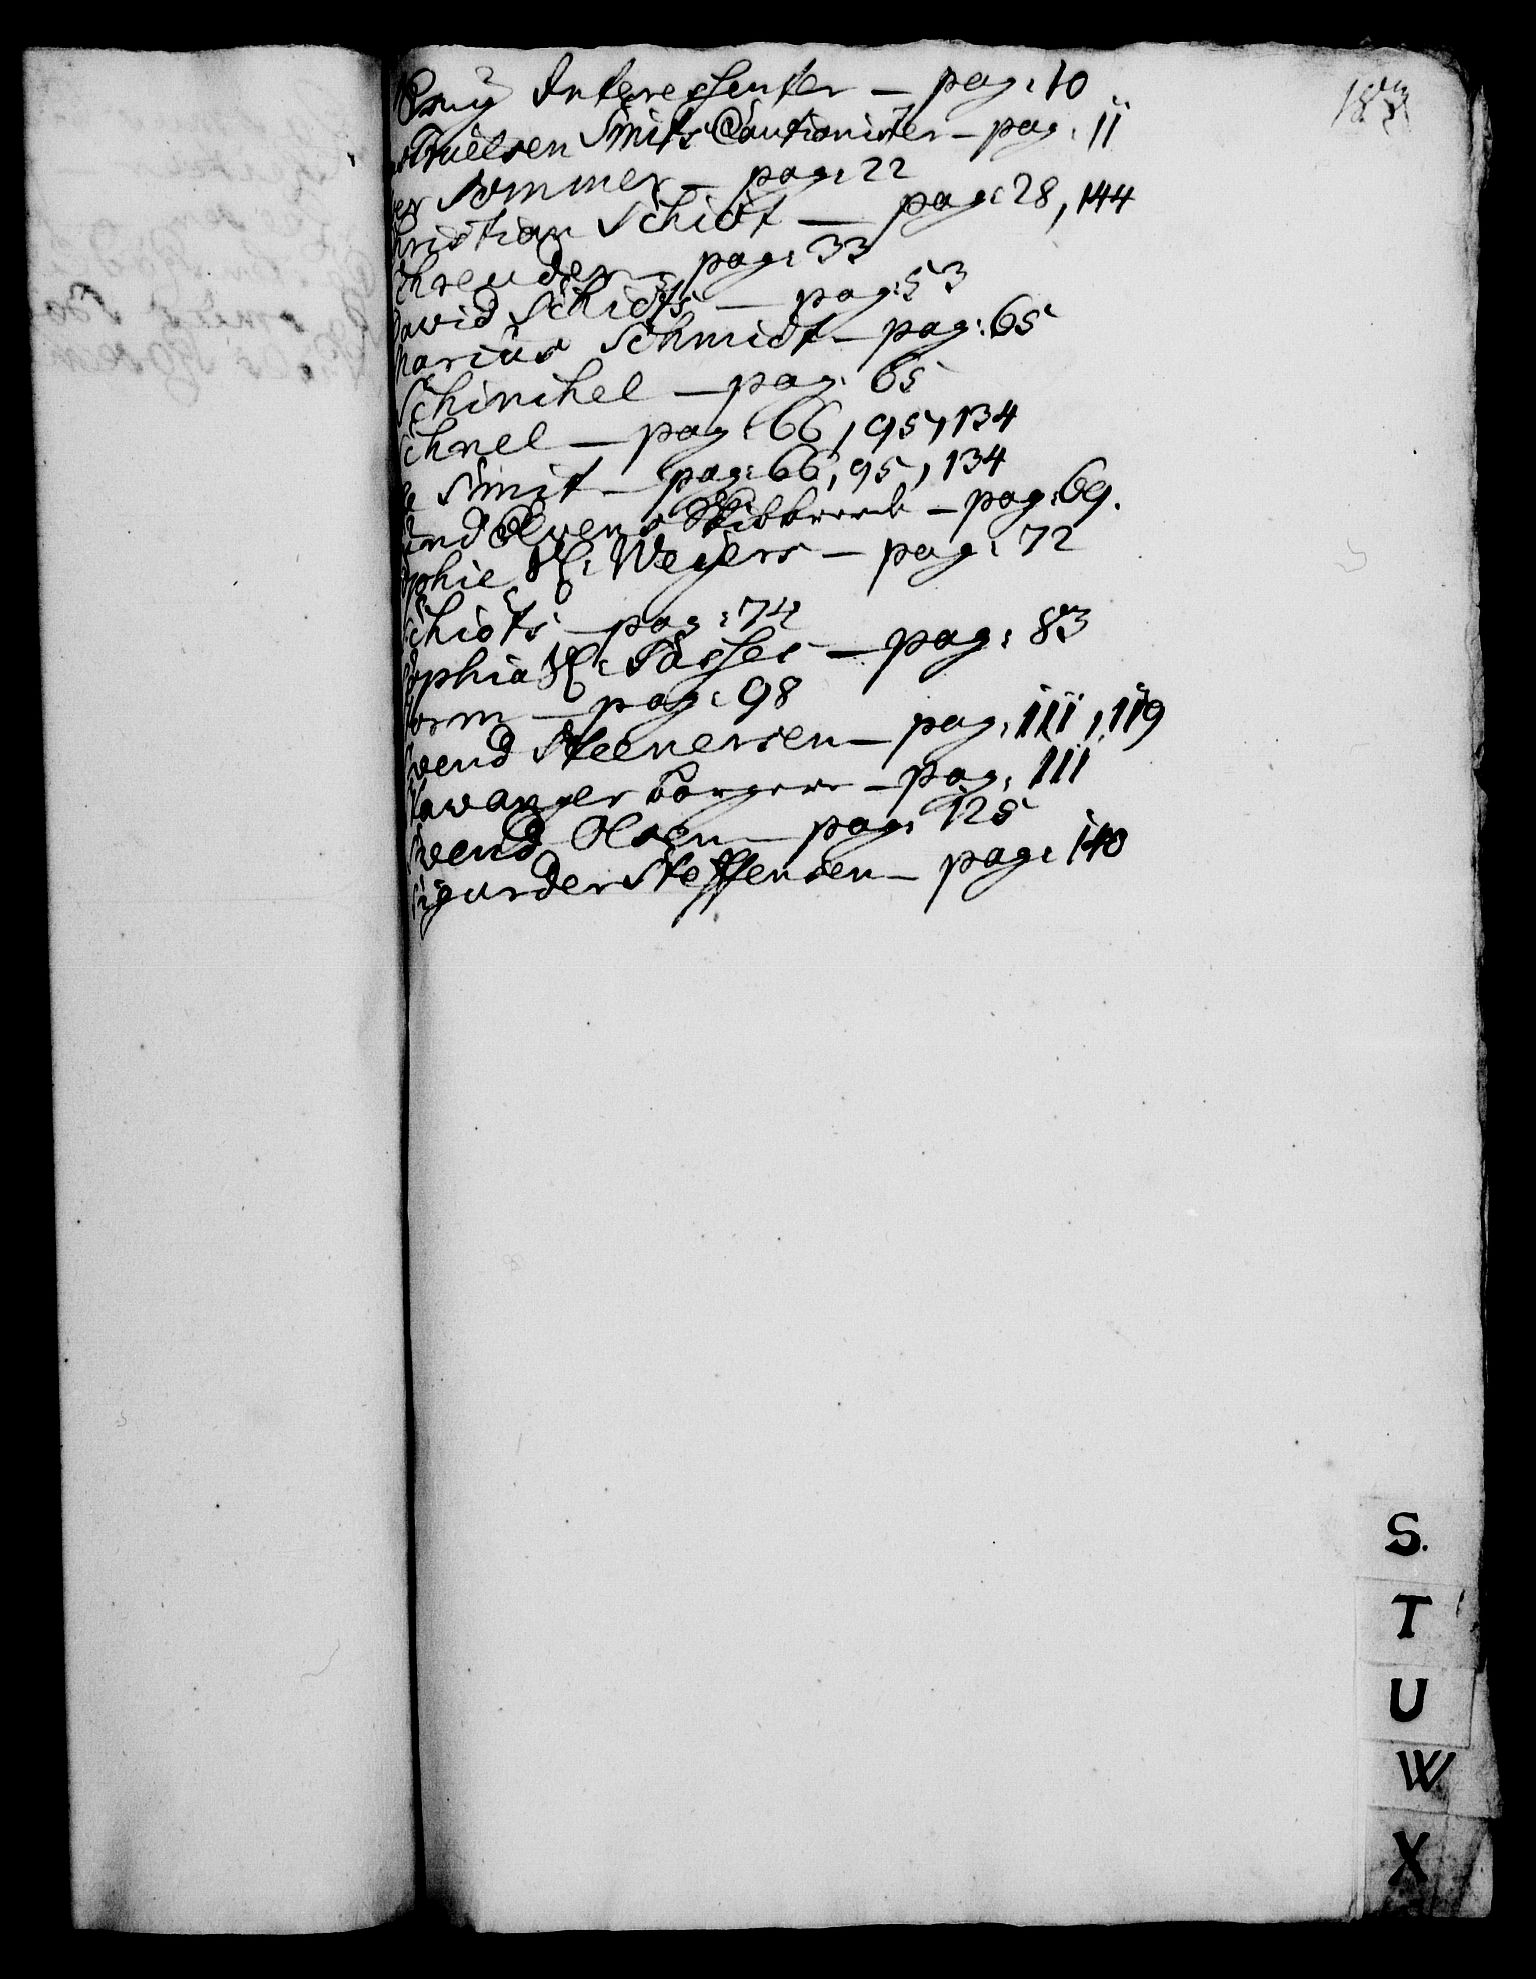 Interessenter — pag: 10
Truelsen Smits Cautionister — pag: 11
Sommer — pag: 22
hristian Schiöt — pag: 28, 144
chreuder — pag: 33
David Schiöts — pag: 53
harius Schmidt — pag: 65
Schinchel — pag: 65
chnel — pag: 66, 95, 134
Smit — pag: 66, 95, 134
— pag: 69.
ophie H: Weyers — pag: 72
Schiöts — pag: 74
ophia H: — pag: 83
orm — pag: 98
Svend Steenersen — pag: 111, 119
Stawanger borgere — pag: 111
Svend Olsen — pag: 125
Sigurder Steffensen — pag: 140
S.
T
U
W
X